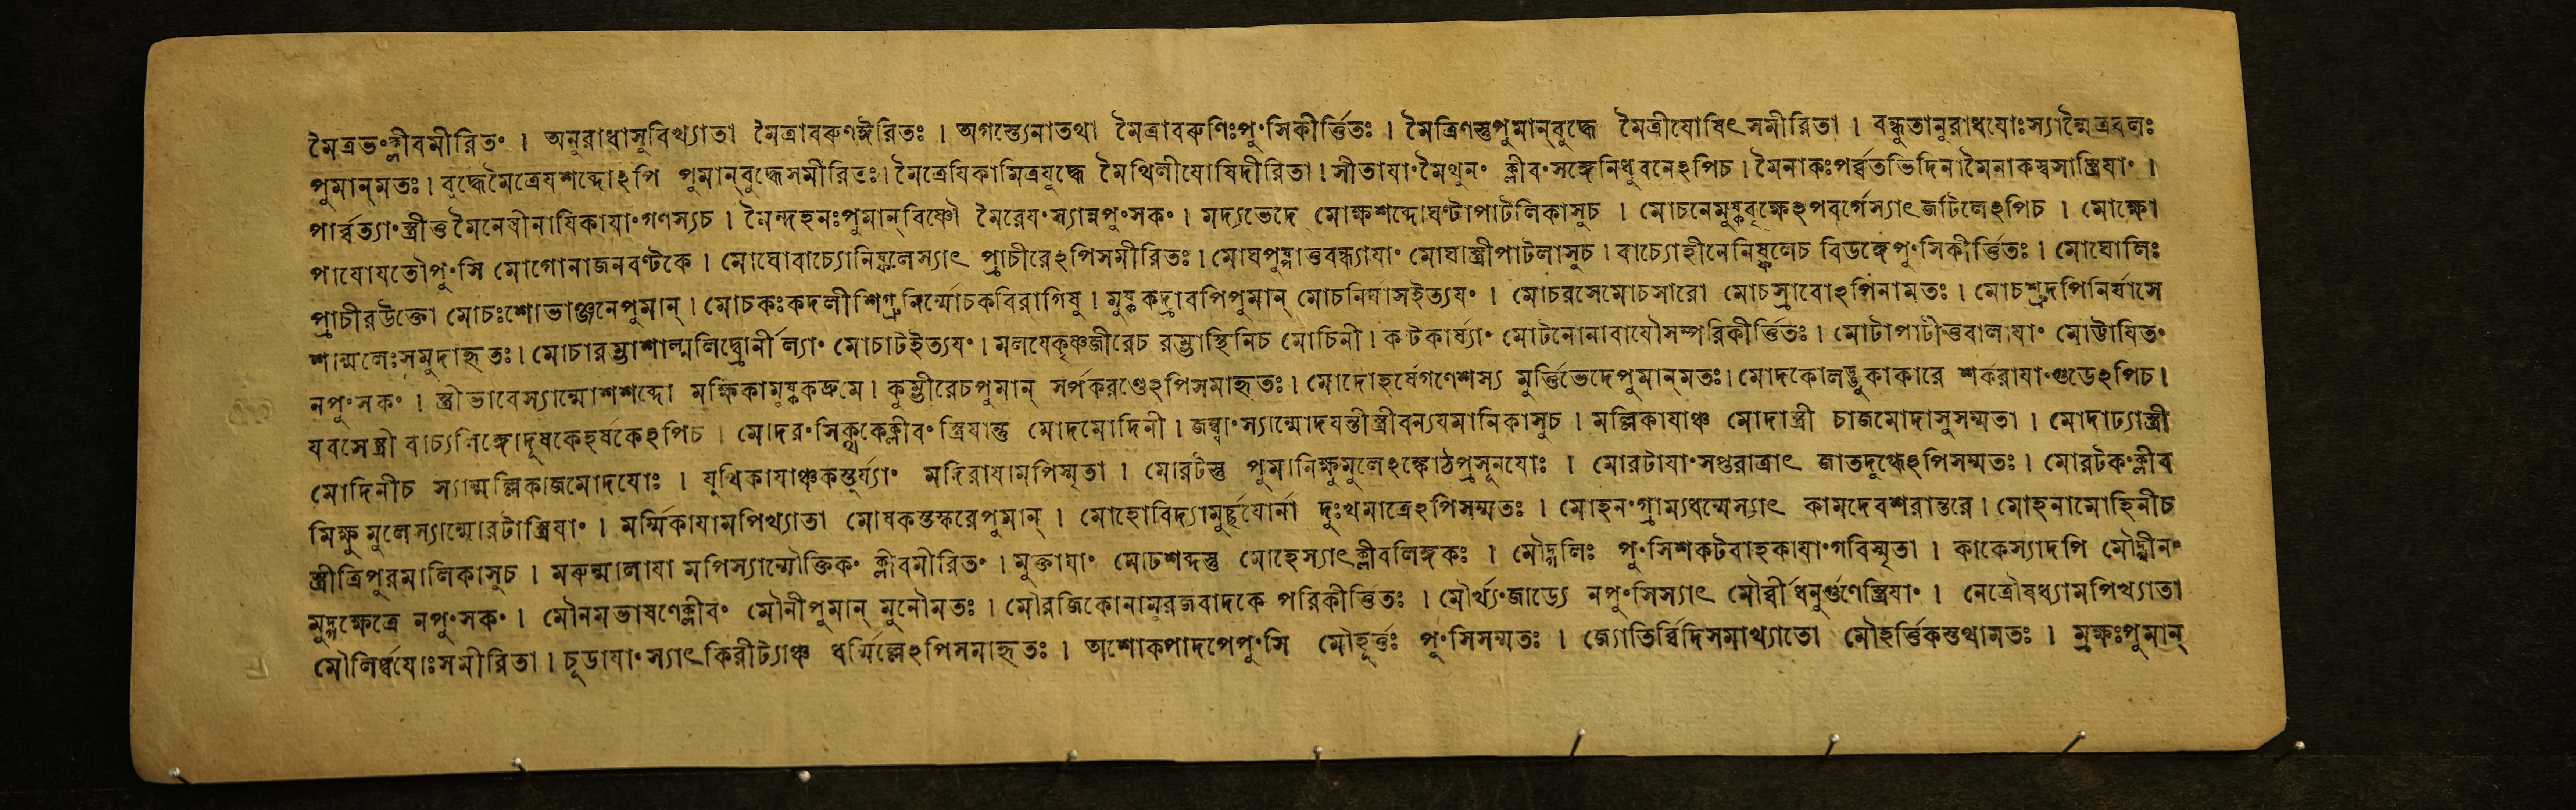 মৈত্রভং ক্লীবমীরিতং । অনুরাধাসুবিখ্যাতা মৈত্রাবৰুণঈরিতঃ । অগস্ত্যেনাতথা মৈত্রাবৰুণিঃপুংসিকীর্ত্তিতঃ । মৈত্রিণস্তুপুমান্‌বুদ্ধে মৈত্রীযোষিৎসমীরিতা । বন্ধুতানুরাধযোঃস্যান্মৈত্রবলঃ
পুমান্‌মতঃ । বুদ্ধেমৈত্রেযশব্দোঽপি পুমান্‌বুদ্ধেসমীরিতঃ । মৈত্রেযিকামিত্রযুদ্ধে মৈথিলীযোষিদীরিতা । সীতাযাং মৈথুনং ক্লীবং সঙ্গেনিধুবনেঽপিচ । মৈনাকঃপর্ব্বতভিদিনামৈনাকস্বসাস্ত্রিযাং ।
পার্ব্বত্যাং স্ত্রীত্তমৈনেযীনাযিকাযাং গণস্যচ । মৈন্দহনঃপুমান্‌বিষ্ণৌ মৈরেযং স্যান্নপুংসকং । মদ্যভেদে মোক্ষশব্দোঘণ্টাপাটলিকাসুচ । মোচনেমুষ্কবৃক্ষেঽপবর্গেস্যাৎ জটিলেঽপিচ । মোক্ষো
পাযোযতৌপুংসি মোগোনাজনবণ্টকে । মোঘোবাচ্যোনিষ্ফলেস্যাৎ প্রাচীরেঽপিসমীরিতঃ । মোঘপুষ্পাত্তবন্ধ্যাযাং মোঘাস্ত্রীপাটলাসুচ । বাচ্যোহীনেনিষ্ফলেচ বিডঙ্গেপুংসিকীর্ত্তিতঃ । মোঘোলিঃ
প্রাচীরউক্তো মোচঃশোভাঞ্জনেপুমান্‌ । মোচকঃকদলীশিগ্রুনির্ম্মোচকবিরাগিষু । মুষ্ককদ্রাবপিপুমান্‌ মোচনির্যাসইত্যযং । মোচরসেমোচসারো মোচস্রাবোঽপিনামতঃ । মোচশ্রুদপিনির্যাসে
শাল্মলেঃসমুদাহৃতঃ । মোচারম্ভাশাল্মলিদ্ব্রোর্নীল্যাং মোচাটইত্যযং । মলযেকৃষ্ণজীরেচ রম্ভাস্থিনিচ মোচিনী । কটকার্য্যাং মোটনোনাবাযৌসম্পরিকীর্ত্তিতঃ । মোটাপাটীত্তবালাযাং মোট্টাযিতং
নপুংসকং । স্ত্রীভাবেস্যান্মোশশব্দো মক্ষিকামুষ্ককদ্রুমে । কুম্ভীরেচপুমান্‌ সর্পকরণ্ডেঽপিসমাহৃতঃ । মোদোহর্ষেগণেশস্য মুর্ত্তিভেদেপুমান্‌মতঃ । মোদকোলড্ডুকাকারে শর্করাযাং গুডেঽপিচ ।
যবসেস্ত্রী বাচ্যলিঙ্গোদূষকেহর্ষকেঽপিচ । মোদরংসিক্থকেক্লীবং স্ত্রিযান্তু মোদমোদিনী । জম্বাং স্যান্মোদযন্তীস্ত্রীবন্যযমানিকাসুচ । মল্লিকাযাঞ্চ মোদাস্ত্রী চাজমোদাসুসম্মতা । মোদাঢ্যাস্ত্রী
মোদিনীচ স্যান্মল্লিকাজমোদযোঃ । যুথিকাযাঞ্চকস্তুর্য্যাং মদিরাযামপিস্মৃতা । মোরটস্তু পুমানিক্ষুমুলেঽঙ্কোঠপ্রসূনযোঃ । মোরটাযাং সপ্তরাত্রাৎ জাতদুগ্ধেঽপিসম্মতঃ । মোরটকং ক্লীব
মিক্ষু মুলেস্যান্মোরটাস্ত্রিযাং । মর্ম্মিকাযামপিখ্যাতা মোষকস্তস্করেপুমান্‌ । মোহোবিদ্যামুর্চ্ছযোর্না দুঃখমাত্রেঽপিসম্মতঃ । মোহনং গ্রাম্যধম্মেস্যাৎ কামদেবশরান্তরে । মোহনামোহিনীচ
স্ত্রীত্রিপুরমালিকাসুচ । মৰুন্মালাযা মপিস্যান্মৌক্তিকং ক্লীবমীরিতং । মুক্তাযাং মোঢশব্দস্তু মোহেস্যাৎক্লীবলিঙ্গকঃ । মৌদ্গলিঃ পুংসিশকটবাহকাযাং গবিস্মৃতা । কাকেস্যাদপি মৌদ্গীনং
মুদ্গক্ষেত্রে নপুংসকং । মৌনমভাষণেক্লীবং মৌনীপুমান্‌ মুনৌমতঃ । মৌরজিকোনামুরজবাদকে পরিকীর্ত্তিতঃ । মৌর্খ্যংজাড্যে নপুংসিস্যাৎ মৌর্ব্বীধনুর্গুণেস্ত্রিযাং । নেত্রৌষধ্যামপিখ্যাতা
মৌলির্দ্বযোঃসমীরিতা । চূডাযাং স্যাৎকিরীট্যাঞ্চ ধর্ম্মিল্লেঽপিসমাহৃতঃ । অশোকপাদপেপুংসি মৌহূর্ত্তঃ পুংসিসম্মতঃ । জ্যোতির্ব্বিদিসমাখ্যাতো মৌহর্ত্তিকস্তথামতঃ । ম্রক্ষঃপুমান্‌